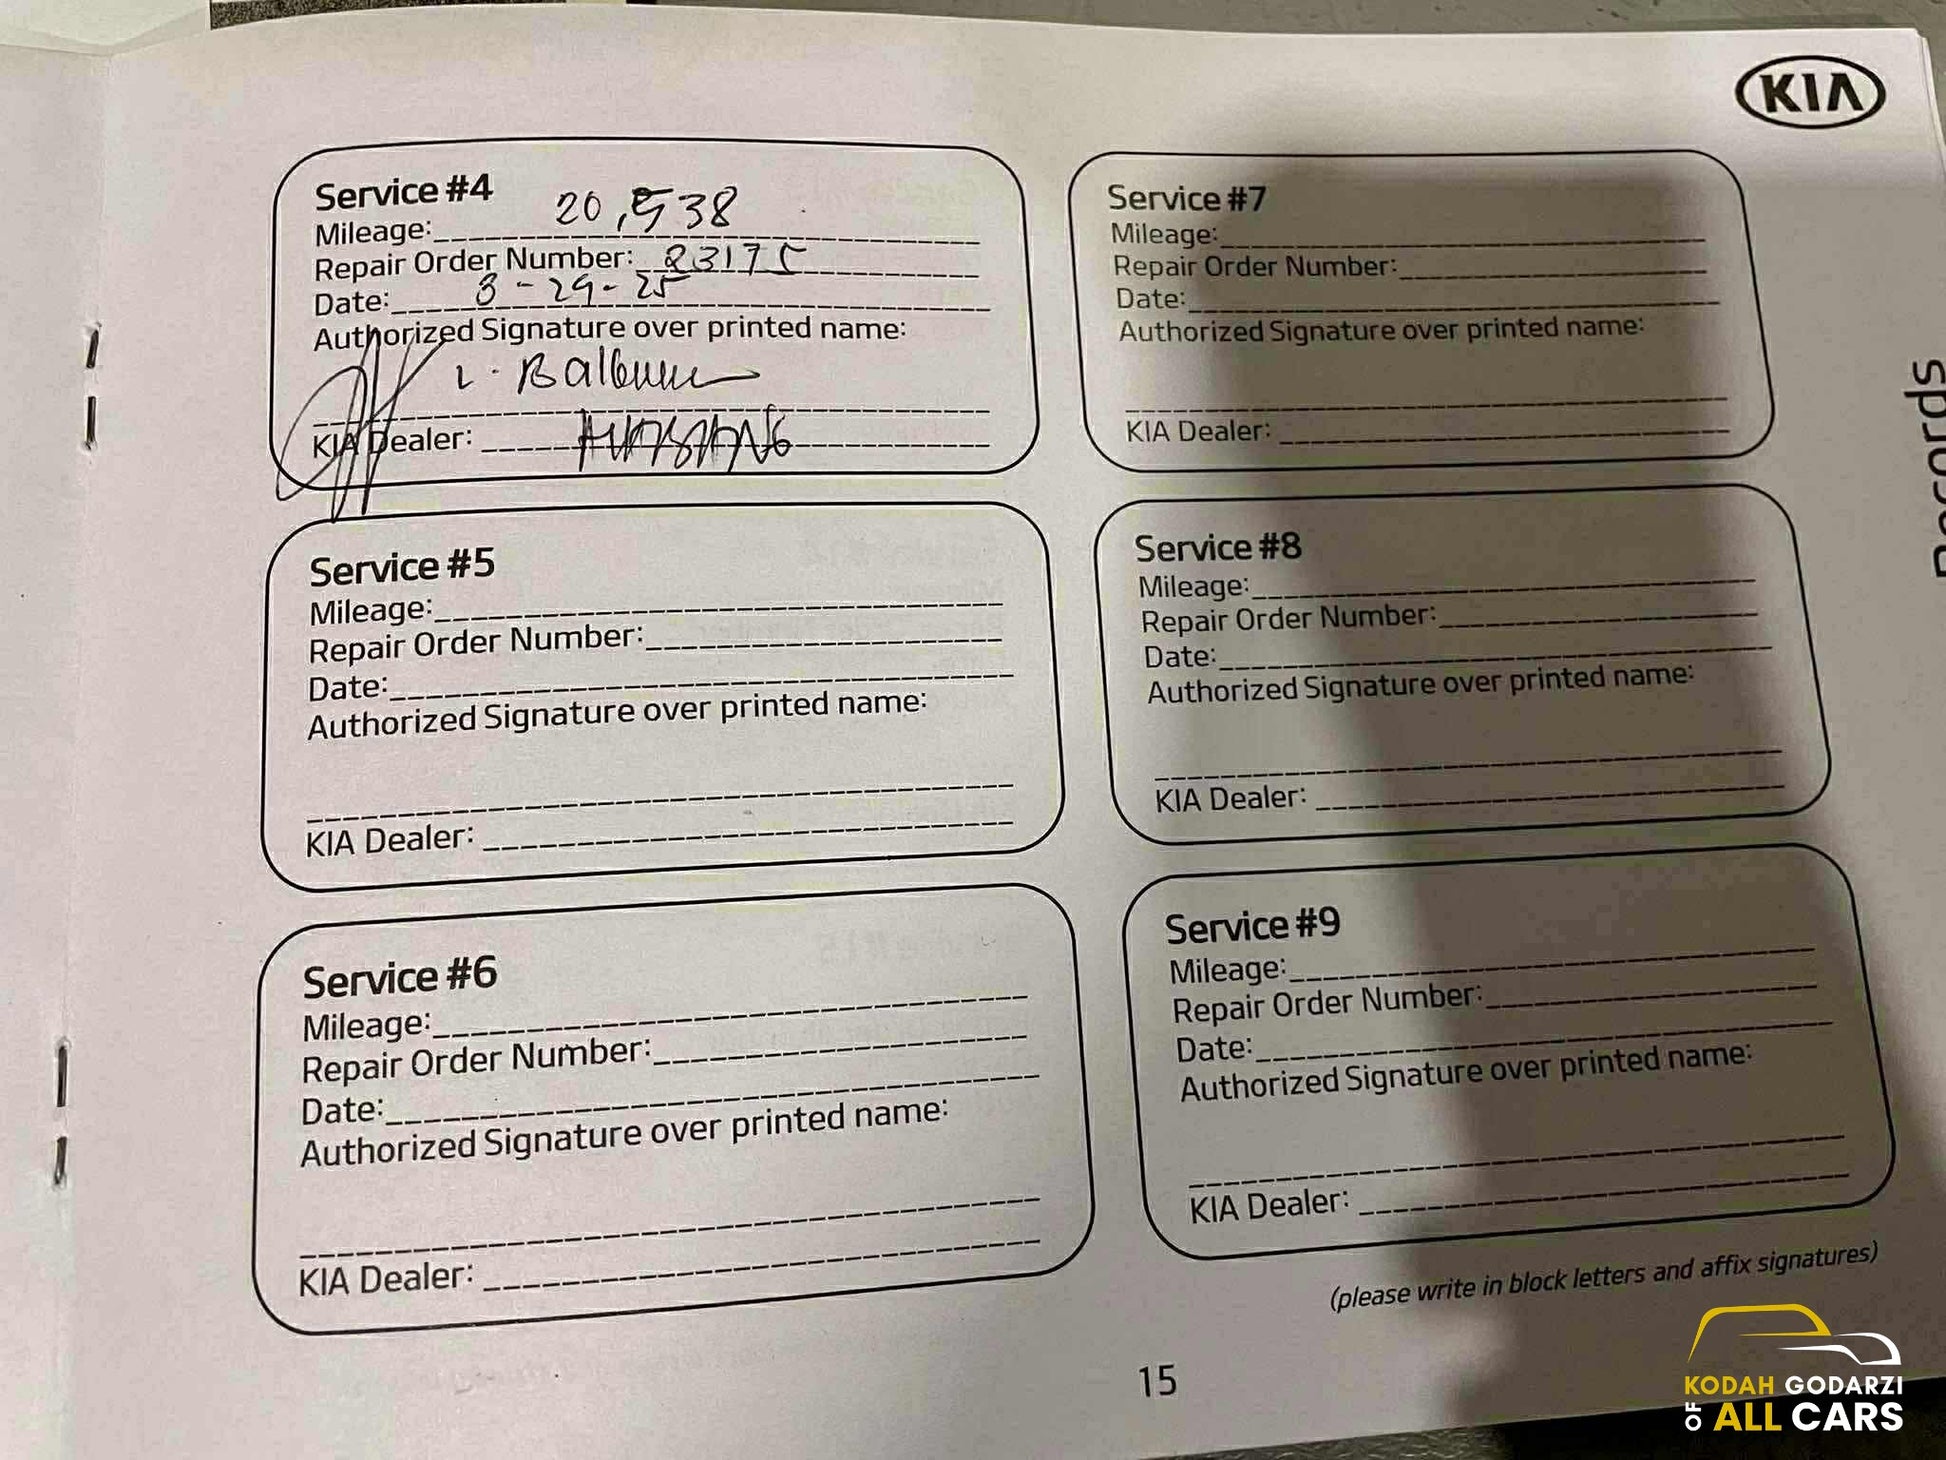 KIA
Service #4
Mileage: 20,538
Repair Order Number: 23175
Date: 8-29-25
Authorized Signature over printed name:
L.
KIA Dealer:
Service #5
Mileage:
Repair Order Number:
Date:
Authorized Signature over printed name:
KIA Dealer:
Service #6
Mileage:
Repair Order Number:
Date:
Authorized Signature over printed name:
KIA Dealer:
Service #7
Mileage:
Repair Order Number:
Date:
Authorized Signature over printed name:
KIA Dealer:
Service #8
Mileage:
Repair Order Number:
Date:
Authorized Signature over printed name:
KIA Dealer:
Service #9
Mileage:
Repair Order Number:
Date:
Authorized Signature over printed name:
KIA Dealer:
(please write in block letters and affix signatures)
15
Records
KODAH GODARZI
OF ALL CARS